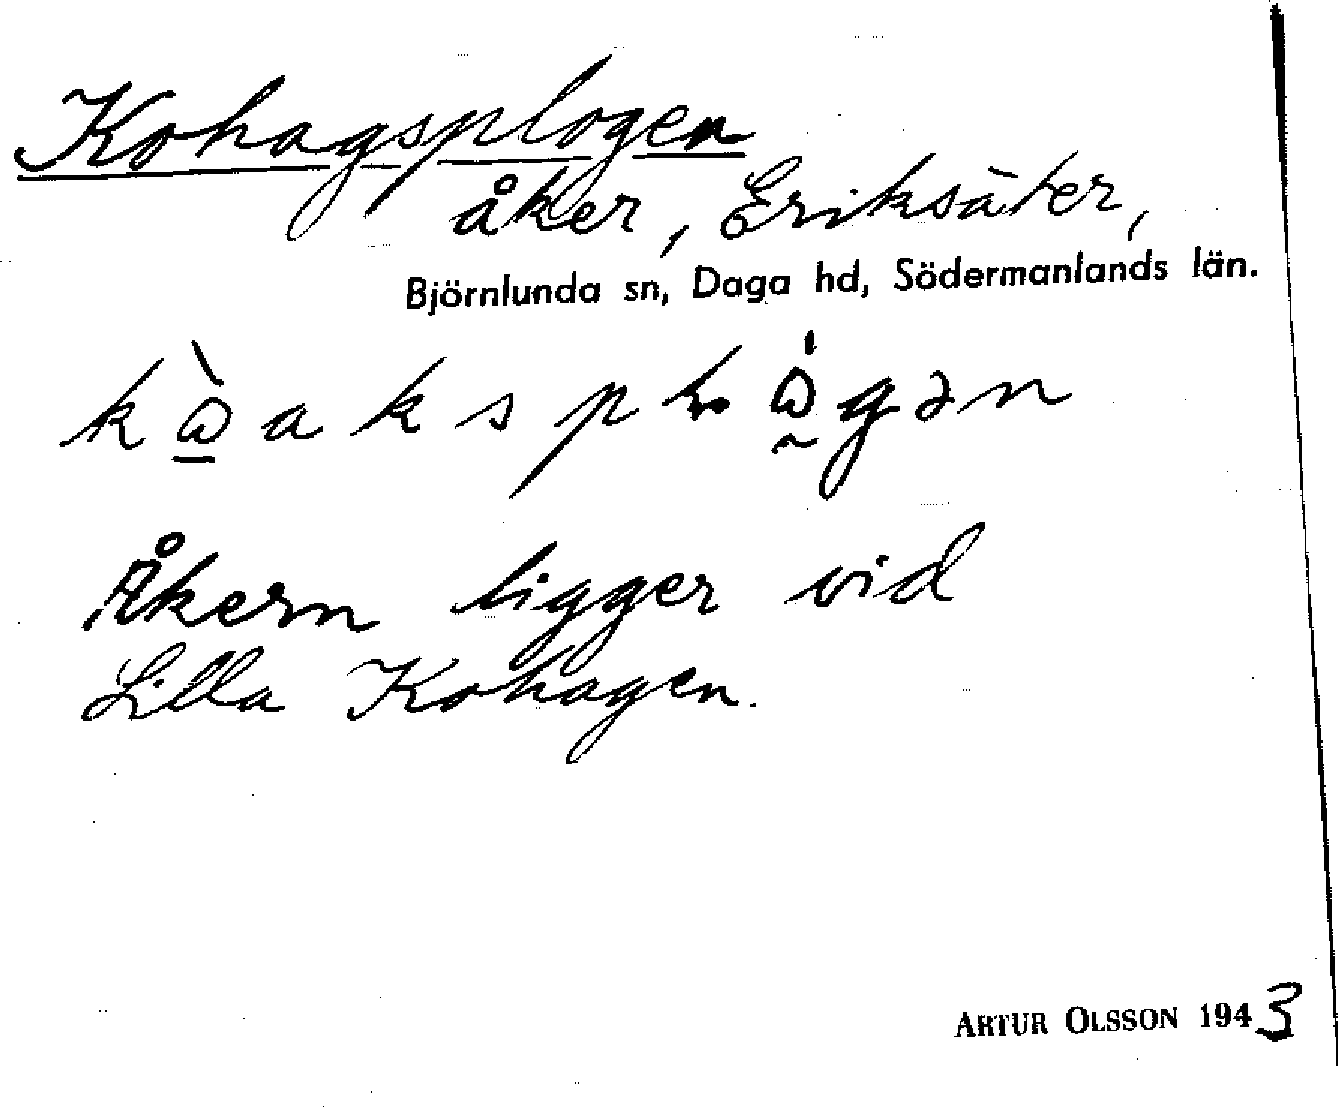 Kohagsplogen
åker, Eriksäter,
Björnlunda sn, Daga hd, Södermanlands län.
Åkern ligger vid
Lilla Kohagen.
ARTUR OLSSON 1943